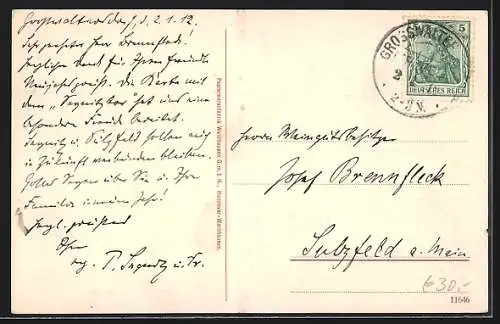 Grosswaltersdorf, d. 2.1.12.
Sehr geehrter Herr Brennfleck!
Herzlichen Dank für Ihren freundl.
Neujahrsgruß. Die Karte mit
dem "Segnitztor" hat uns eine
besondere Freude bereitet.
Segnitz u. Sulzfeld sollen auch
in Zukunft verbunden bleiben.
Gottes Segen über Sie u. Ihre
Familie im neuen Jahr!
Ihr
P. Segnitz u. Fr.
Papierwarenfabrik Weinthausen G.m.b.H., Hannover-Weinthausen.
GROSSWALTE
5
DEUTSCHES REICH
Herrn Weingutsbesitzer
Josef Brennfleck
Sulzfeld a. Main.
€30.-
11646